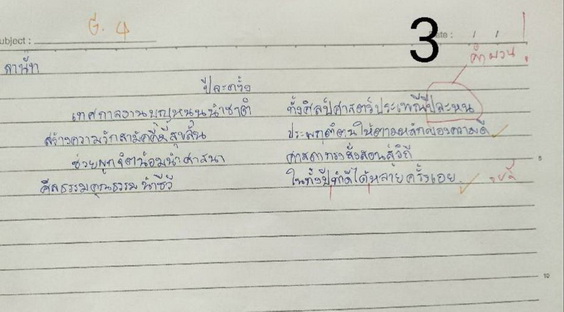 G. 4
3
ubject :
Date : / /
คำผวน
ลานัท
ปีละครั้ง
เทศกาลงานบุญหนุนนำชาติ ทั้งศิลป์ศาสตร์ประเพณีปีละหน
สร้างความรักสามัคคีมีสุขล้น ประพฤติตนให้ตามหลักของความดี
ช่วยผูกจิตน้อมนำศาสนา ศาสดาทรงสั่งสอนสู่วิถี
ศีลธรรมคุณธรรมนำชีวี ในทั้งปีทำดีได้หลายครั้งเอย
5
10